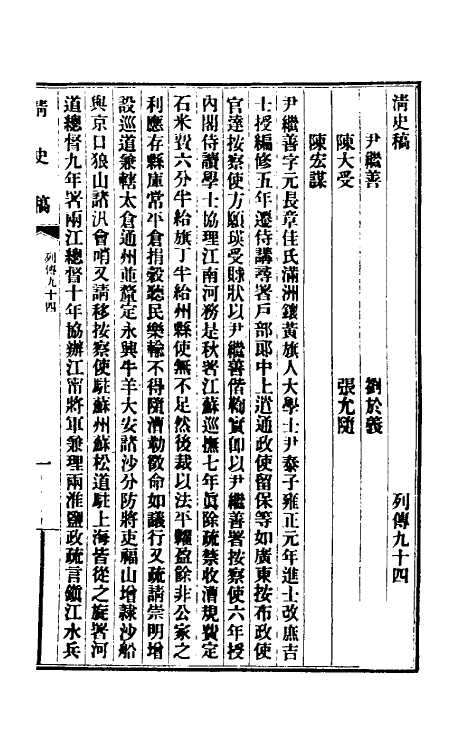 清史稿 列傳九十四
尹繼善 劉於義
陳大受 張允隨
陳宏謀
尹繼善字元長章佳氏滿洲鑲黃旗人大學士尹泰子雍正元年進士改庶吉
士授編修五年遷侍講尋署戶部郎中上遣通政使留保等如廣東按布政使
官達按察使方願瑛受賕狀以尹繼善偕鞫實卽以尹繼善署按察使六年授
內閣侍讀學士協理江南河務是秋署江蘇巡撫七年眞除疏禁收漕規費定
石米費六分半給旗丁半給州縣使無不足然後裁以法平糶盈餘非公家之
利應存縣庫常平倉捐穀聽民樂輸不得隨漕勒徵命如議行又疏請崇明增
設巡道兼轄太倉通州並釐定永興牛羊大安諸沙分防將吏福山增隸沙船
與京口狼山諸汛會哨又請移按察使駐蘇州蘇松道駐上海皆從之旋署河
道總督九年署兩江總督十年協辦江甯將軍兼理兩淮鹽政疏言鎭江水兵
清史稿 列傳九十四 一